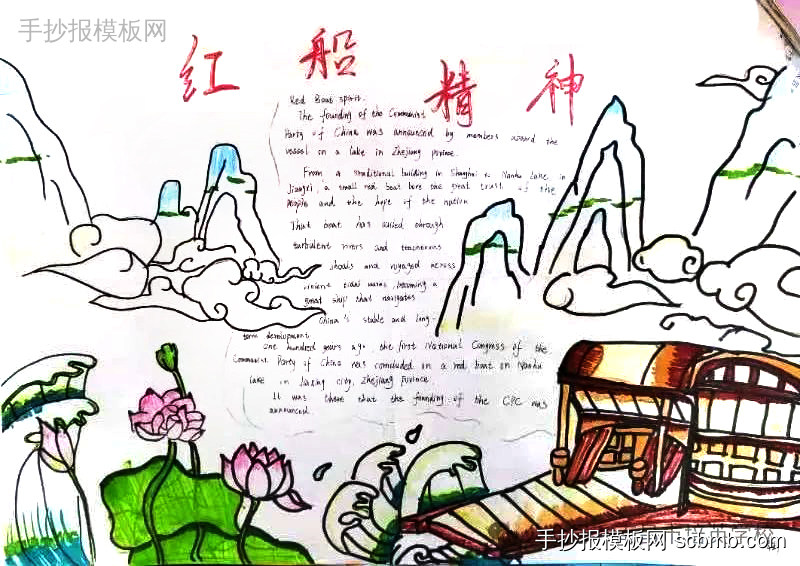 手抄报模板网
红船精神
Red Boat spirit.
The founding of the Communist
Party of China was announced by members aboard the
vessel on a lake in Zhejiang Province.
From a traditional building in Shanghai to Nanhu Lake in
a small red boat bore the great trust of the
people and the hope of the nation
That boat has sailed through
turbulent rivers and
shoals and voyaged across
tidal becoming a
great ship that navigates
China's stable and long-
term development
One hundred years ago the first National Congress of the
Communist Party of China was concluded on a red boat on Nanhu
Lake in Jiaxing city, Zhejiang Province
It was there that the founding of the CPC was
announced
手抄报模板网 scbmb.com